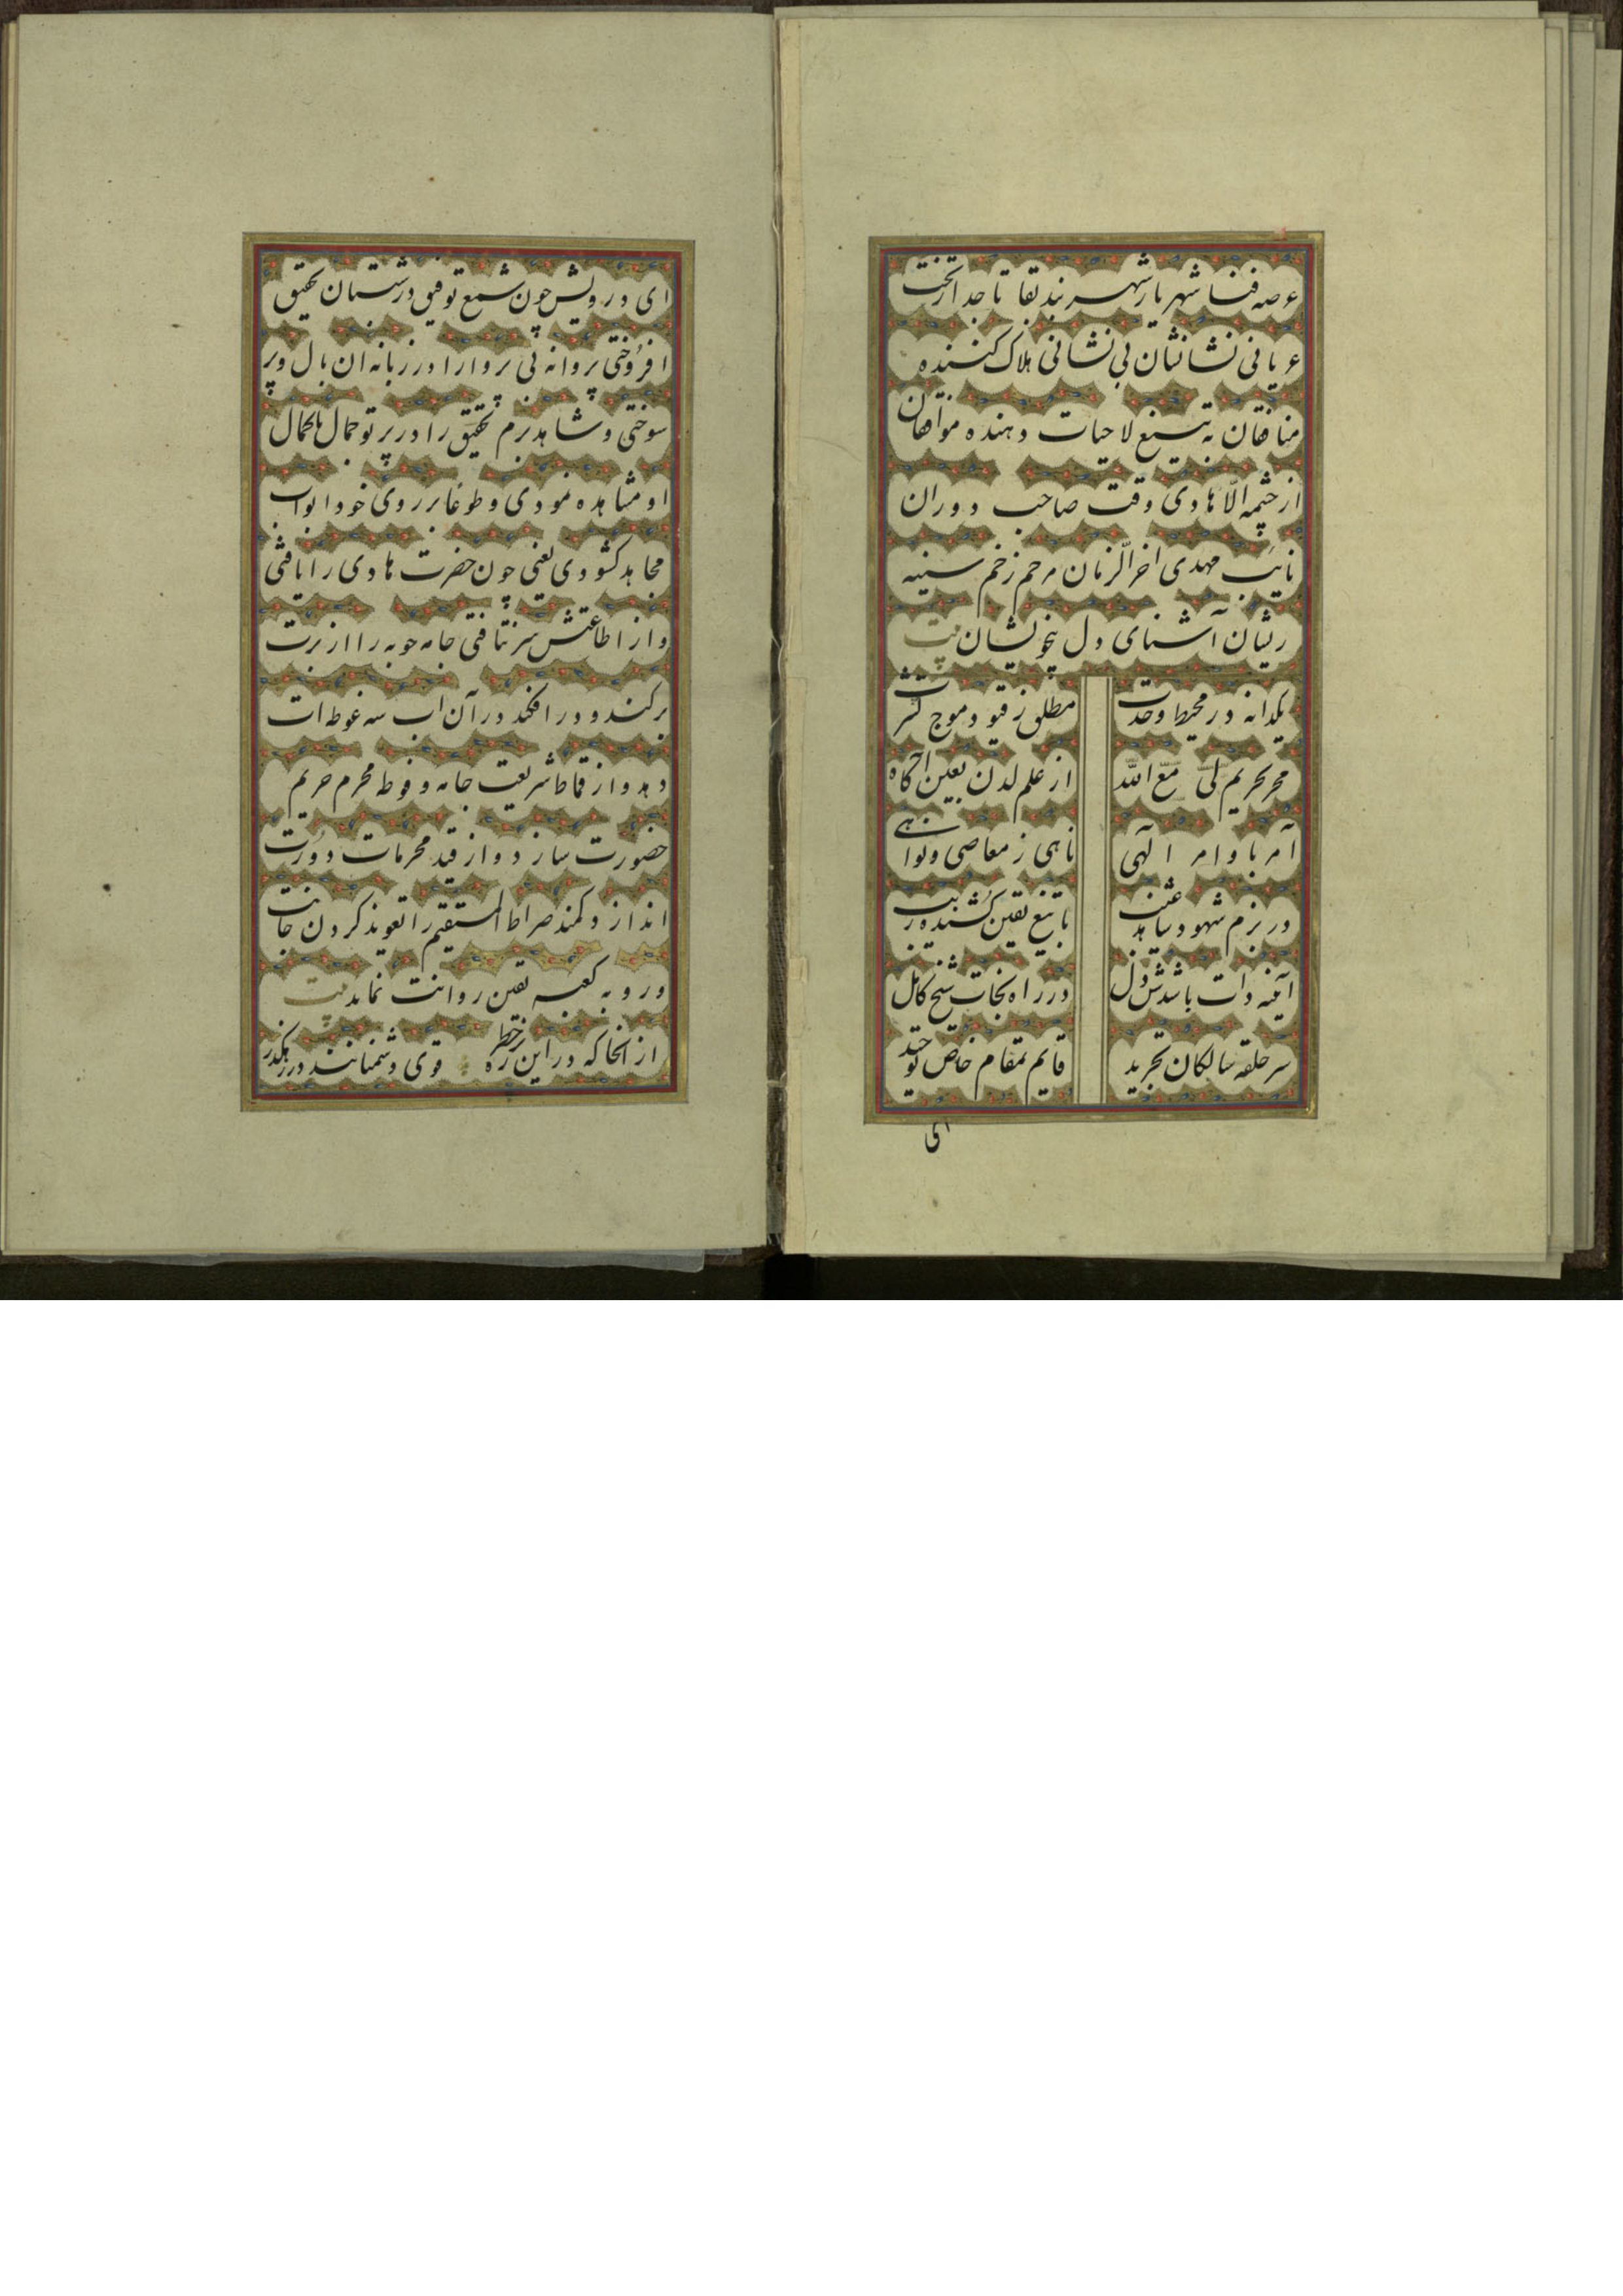 عرصه فنا شهریار شهربند بقا تاجدار تخت
عریانی نشانشان بی نشانی هلاک کننده
منافقان به تیغ لا حیات دهنده موافقان
از چشمه الّا هادی وقت صاحب دوران
نایب مهدی اخرالزمان مرحم زخم سینه
ریشان آشنای دل بیخویشان بیت
یکدانه در محیط وحدت مطلق ز قیود موج کثرت
محرم حریم لی مع الله از علم لدن یقین آگاه
آمر باوامر الهی ناهی ز معاصی و نواهی
در بزم شهود شاهد غیب با تیغ یقین کشنده ریب
آینه ذات باشدش دل در راه نجات شیخ کامل
سر حلقه سالکان تجرید قایم بمقام خاص توحید
ای
ای درویش چون شمع توفیق در شبستان تحقیق
افروختی پروانه بی پروا را در زبانه ان بال و پر
سوختی و شاهد بزم تحقیق را در پرتو جمال باکمال
او مشاهده نمودی و طوعا بر روی خود ابواب
مجاهد کشودی یعنی چون حضرت هادی را یافتی
و از اطاعتش سر نتافتی جامه جوبه را از برت
برکند و در افکند در آن اب سه غوطه ات
دهد و از قماط شریعت جامه و فوطه محرم حریم
حضورت سازد و از قید محرمات دورت
اندازد و کمند صراط المستقیم را تعویذ کردن جانت
و رو به کعبه یقین روانت نماید بیت
از انجا که در این ره پرخطر قوی دشمنانند در رهکذر